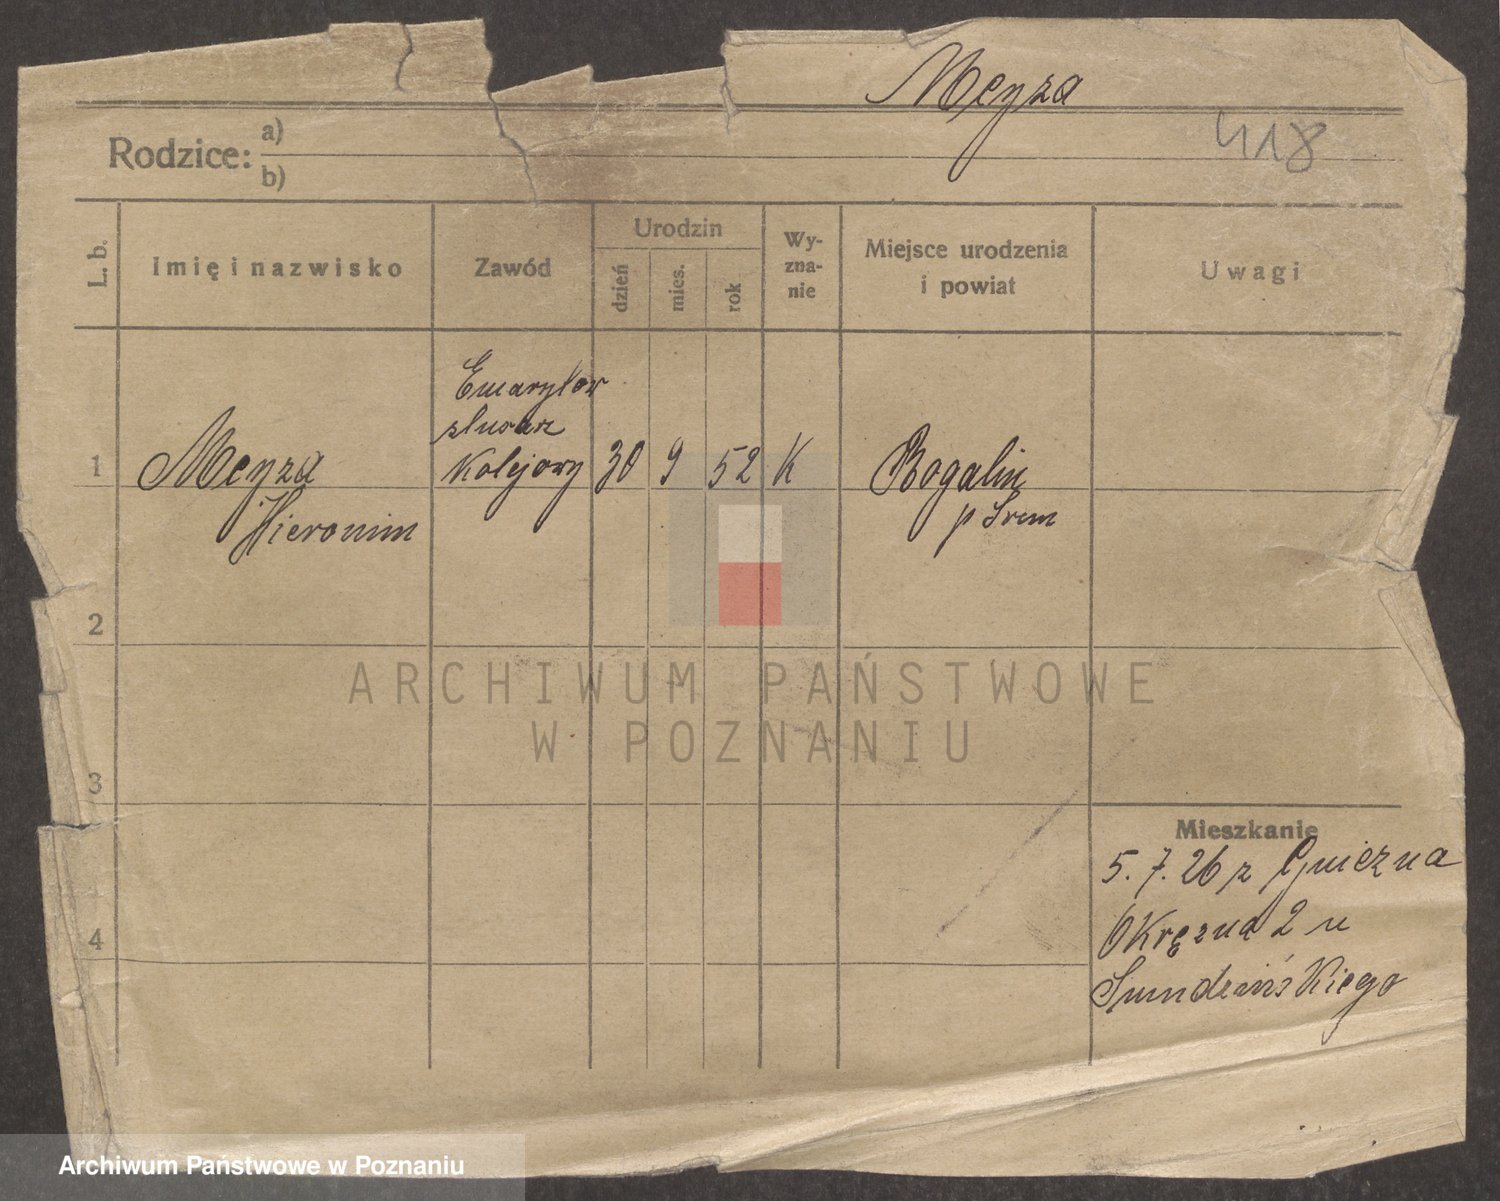 Meyza
418
Rodzice: a)
b)
L. b.
Imię i nazwisko
Zawód
Urodzin
dzień
mies.
rok
Wy-
zna-
nie
Miejsce urodzenia
i powiat
Uwagi
Emarytow
slusarz
1 Meyza Kolejowy 30 9 52 K Rogalin
Hieronim p Srem
2
ARCHIWUM PAŃSTWOWE
W POZNANIU
3
Mieszkanie
5. 7. 26 z Gniezna
4 Okręzna 2 u
Archiwum Państwowe w Poznaniu